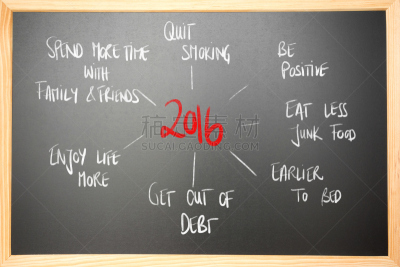 QUIT
SMOKING
SPEND MORE TIME
WITH
FAMILY & FRIENDS
BE
POSITIVE
2016
EAT LESS
JUNK FOOD
ENJOY LIFE
MORE
EARLIER
TO BED
GET OUT OF
DEBT
SUCAIGAOQING.COM